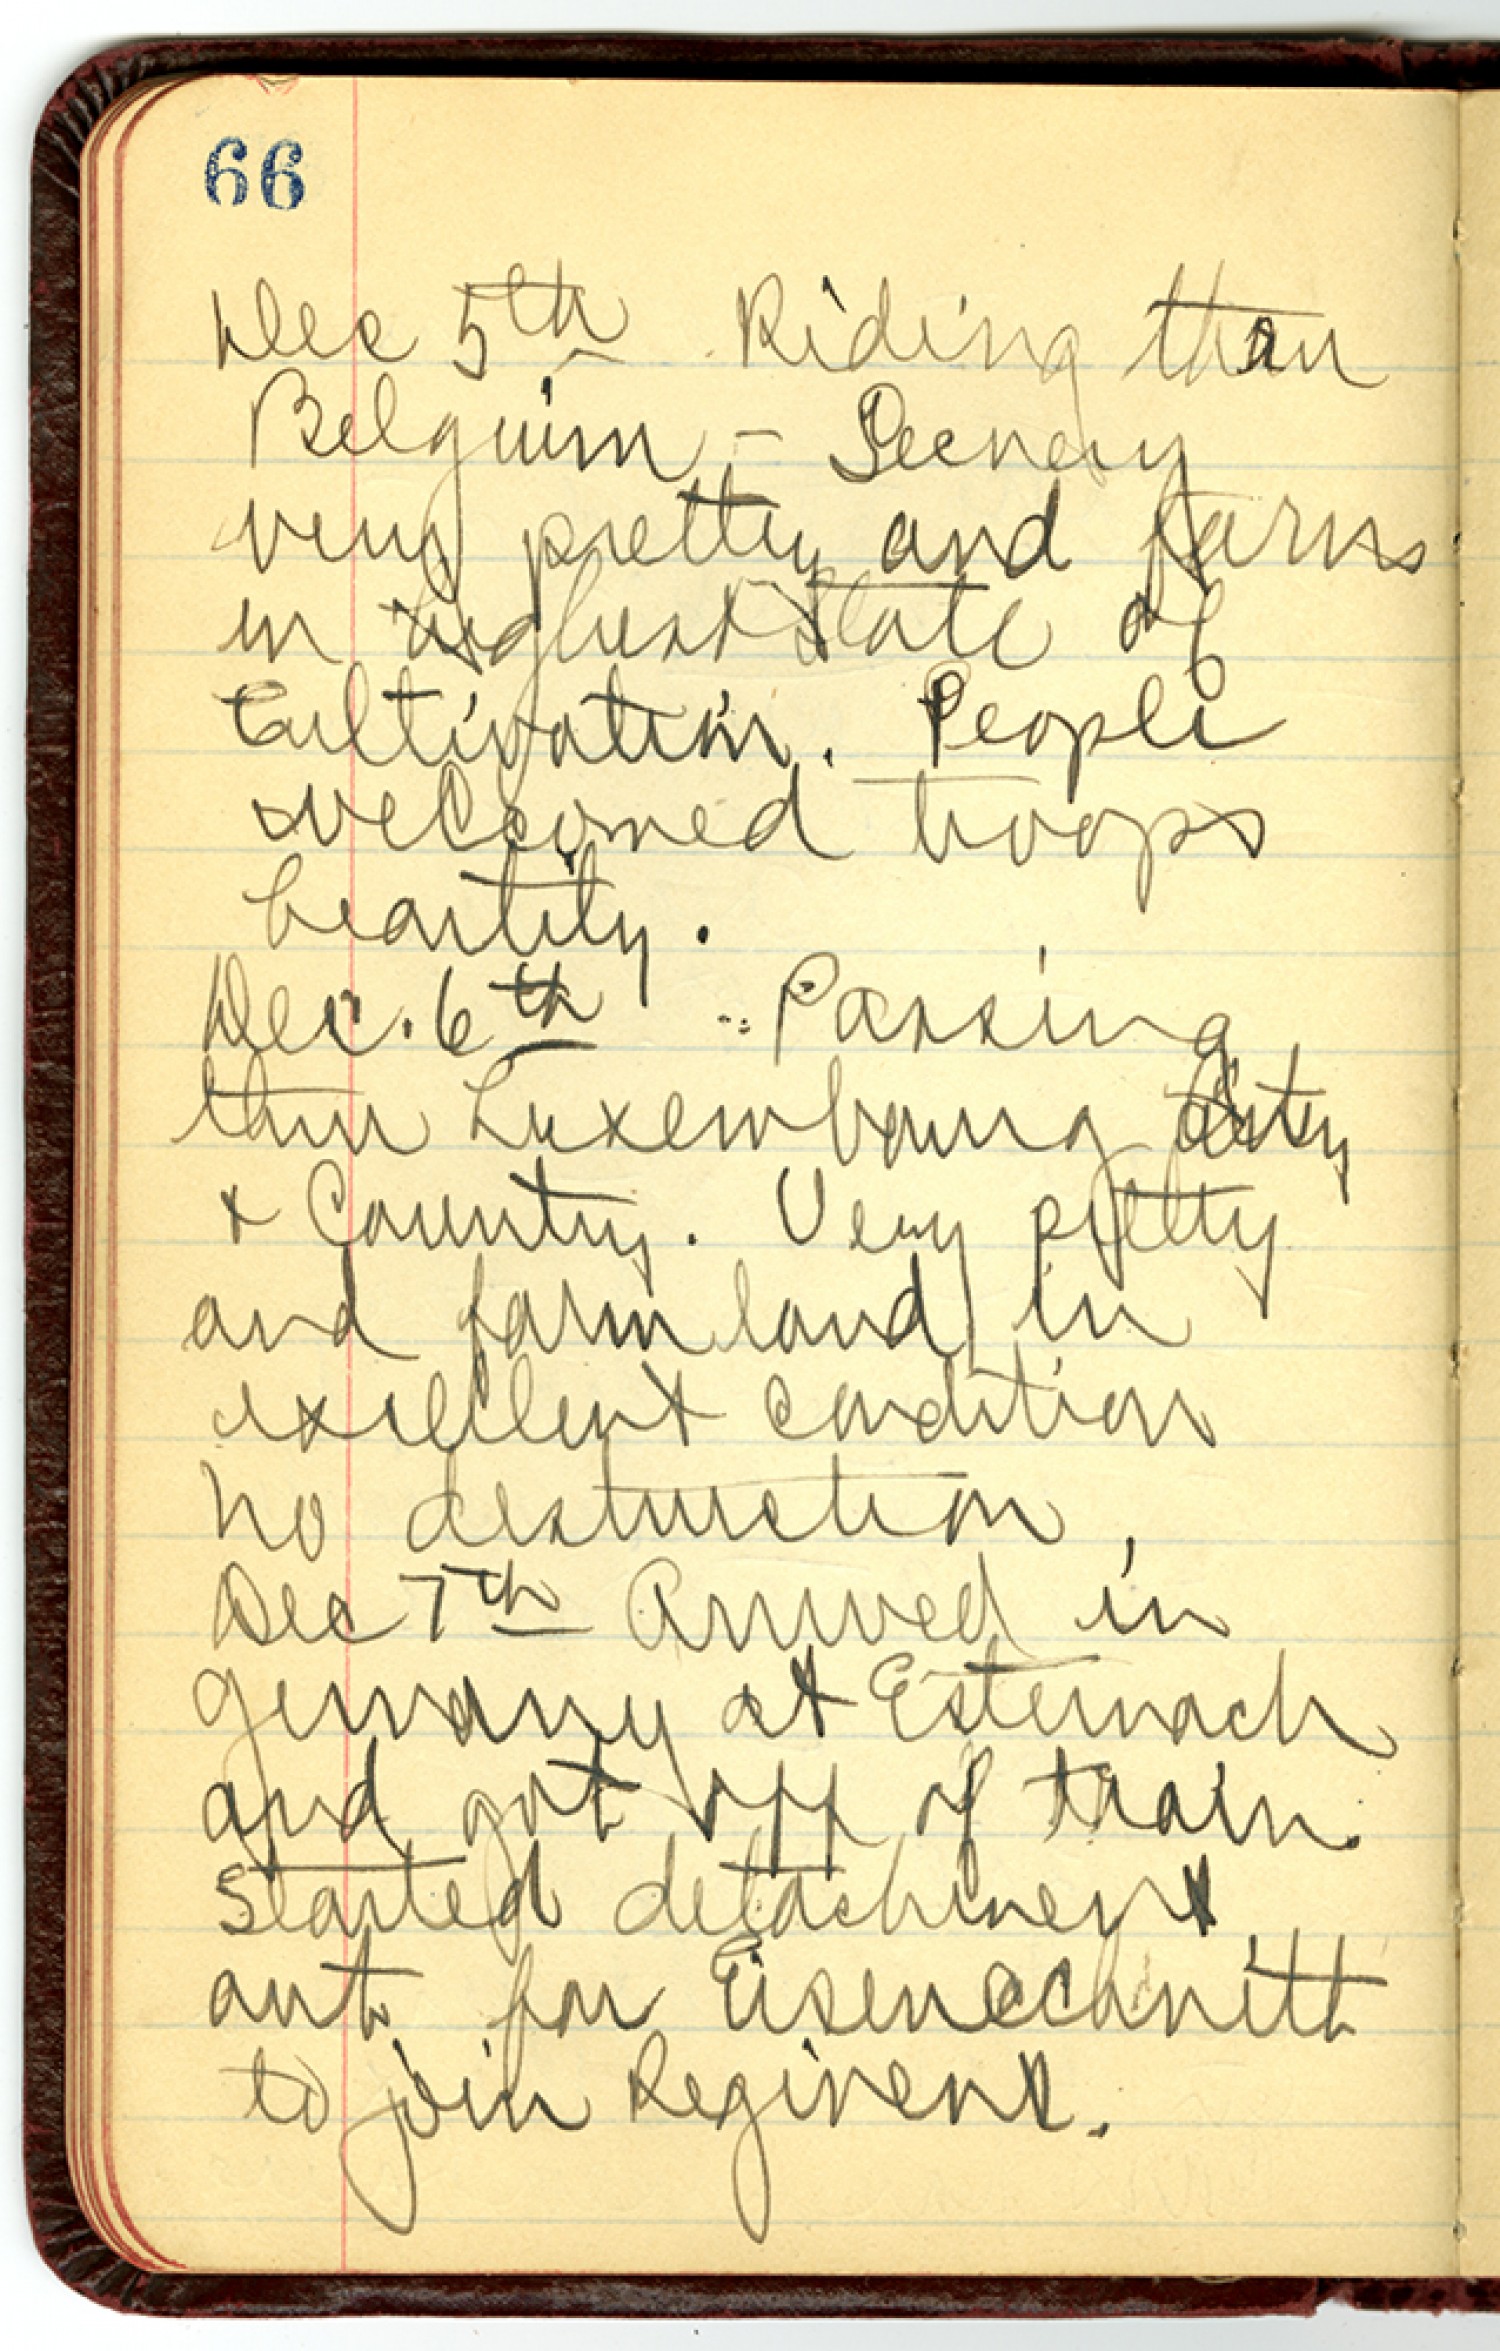 66
Dec 5th Riding thru
Belguim - Scenery
very pretty and farms
in highest state of
Cultivation. People
welcomed troops
heartily.
Dec. 6th Passing
thru Luxembourg City
+ Country. Very pretty
and farm land in
excellent condition
no destruction,
Dec 7th Arrived in
Germany at Esternach
and got off of train.
Started detachment
out for Eisenschnitt
to join Regiment.